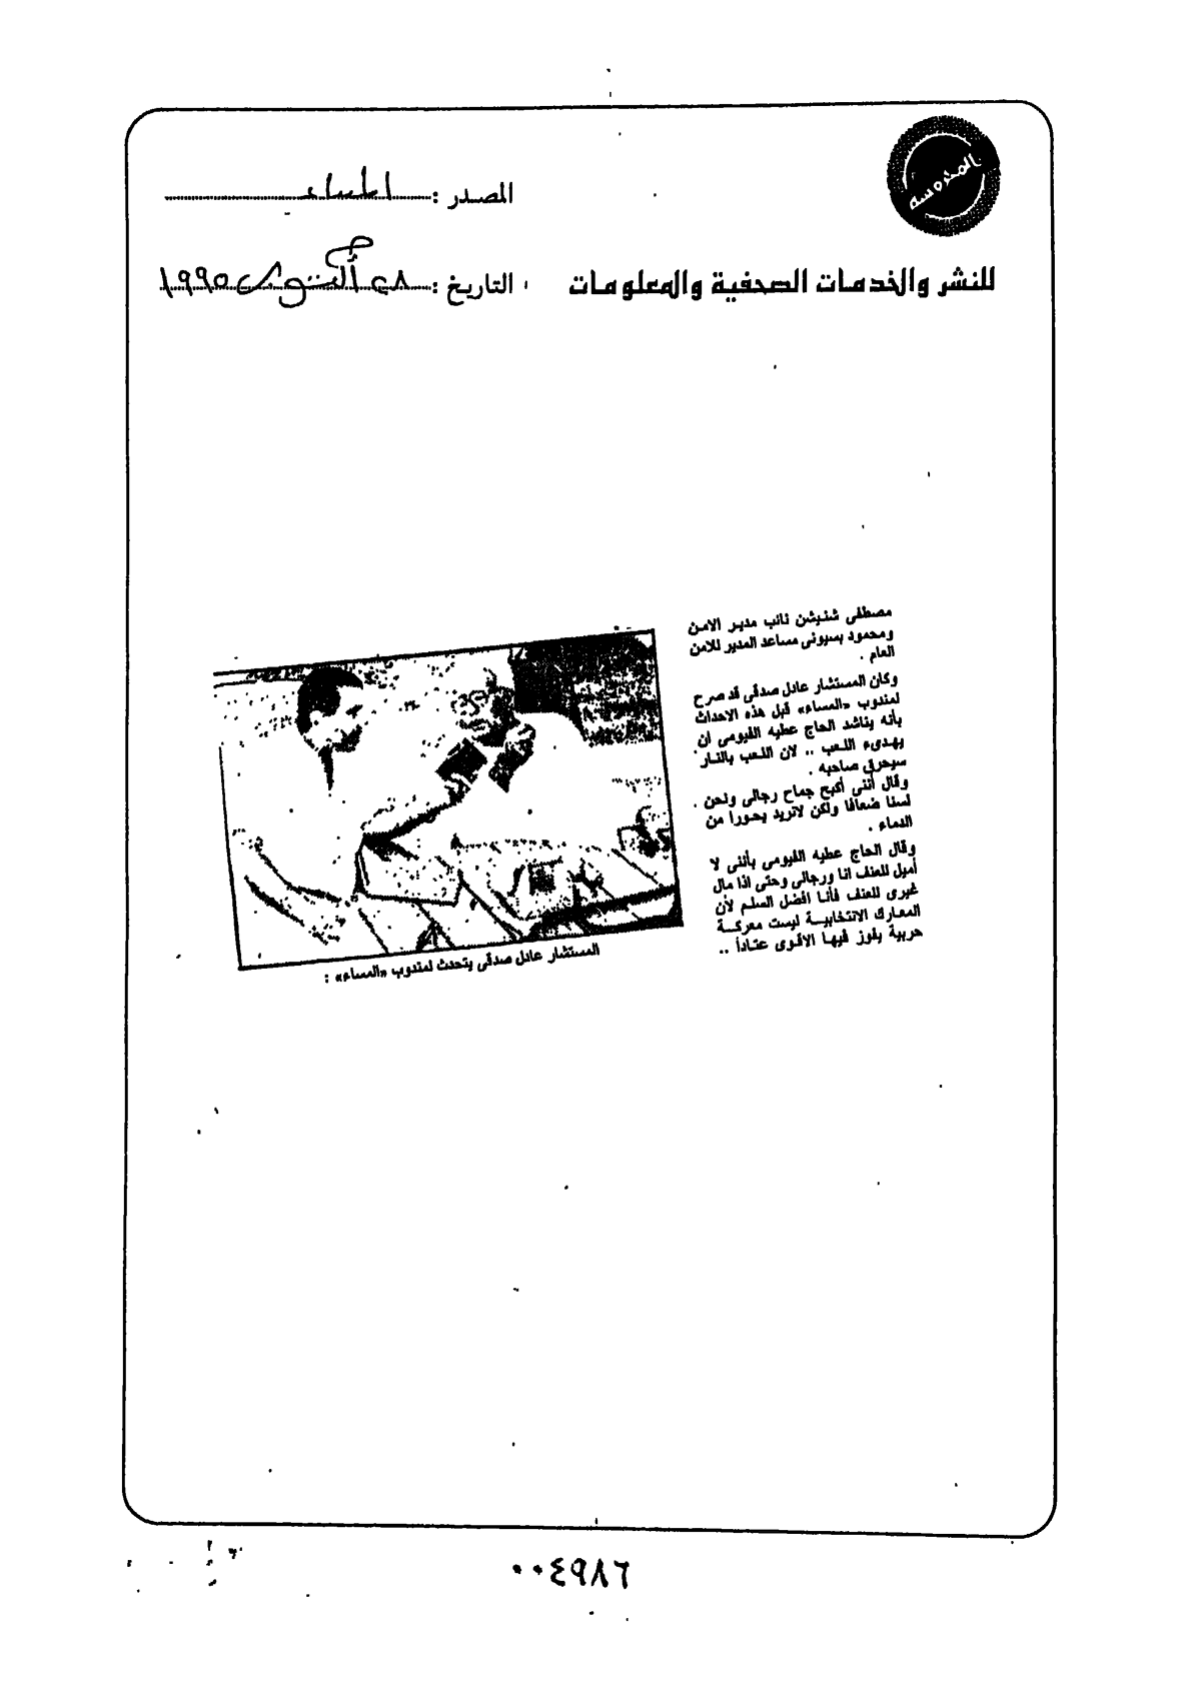 المحروسة
المصدر : المساء
للنشر والخدمات الصحفية والمعلومات
التاريخ : ٢٨ أكتوبر ١٩٩٥
مصطفى شنيشن نائب مدير الامن
ومحمود بسيونى مساعد المدير للامن
العام .
وكان المستشار عادل صدقى قد صرح
لمندوب «المساء» قبل هذه الاحداث
بأنه يناشد الحاج عطيه الفيومى ان
يهدىء اللعب .. لان اللعب بالنار
سيحرق صاحبه .
وقال أننى أكبح جماح رجالى ونحن
لسنا ضعافا ولكن لانريد بحورا من
الدماء .
وقال الحاج عطيه الفيومى بأننى لا
أميل للعنف انا ورجالى وحتى اذا مال
غيرى للعنف فأنا افضل السلم لأن
المعارك الانتخابية ليست معركة
حربية يفوز فيها الاقوى عتاداً ..
المستشار عادل صدقى يتحدث لمندوب «المساء» :
٠٠٤٩٨٦